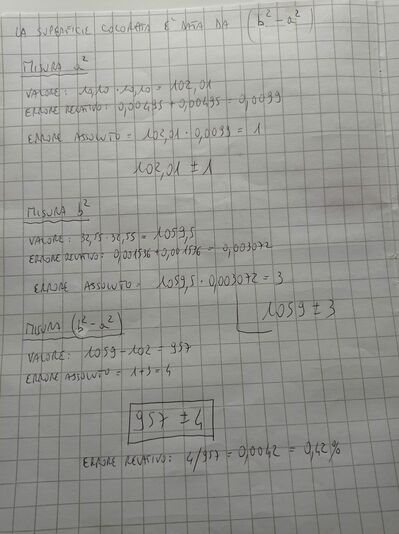 LA SUPERFICIE COLORATA E' DATA DA (b² - a²)
MISURA a²
VALORE: 10,10 · 10,10 = 102,01
ERRORE RELATIVO: 0,00495 + 0,00495 = 0,0099
ERRORE ASSOLUTO = 102,01 · 0,0099 = 1
102,01 ± 1
MISURA b²
VALORE: 32,55 · 32,55 = 1059,5
ERRORE RELATIVO: 0,001536 + 0,001536 = 0,003072
ERRORE ASSOLUTO = 1059,5 · 0,003072 = 3
1059 ± 3
MISURA (b² - a²)
VALORE: 1059 - 102 = 957
ERRORE ASSOLUTO = 1+3 = 4
957 ± 4
ERRORE RELATIVO: 4/957 = 0,0042 = 0,42%